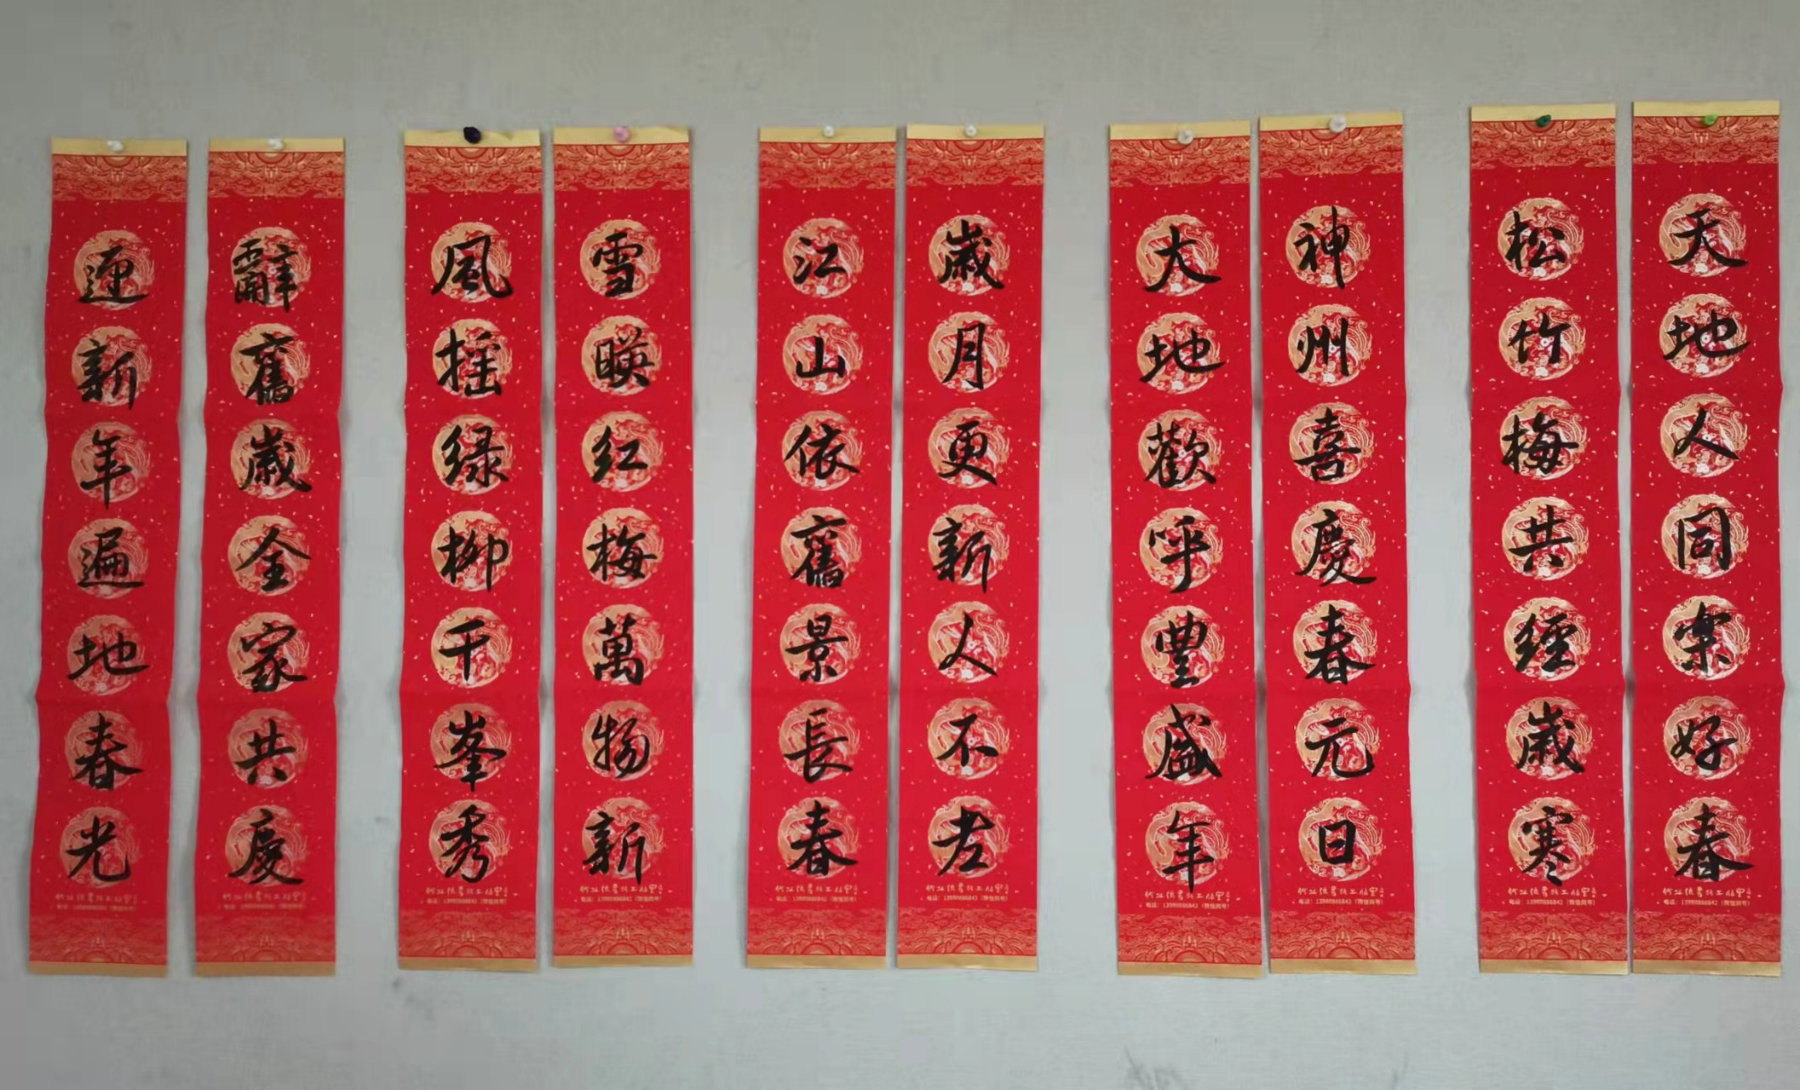 天地人同樂好春
松竹梅共經歲寒
神州喜慶春元日
大地歡呼豐盛年
歲月更新人不老
江山依舊景長春
雪暎红梅萬物新
風摇绿柳千峯秀
辭舊歲全家共慶
迎新年遍地春光